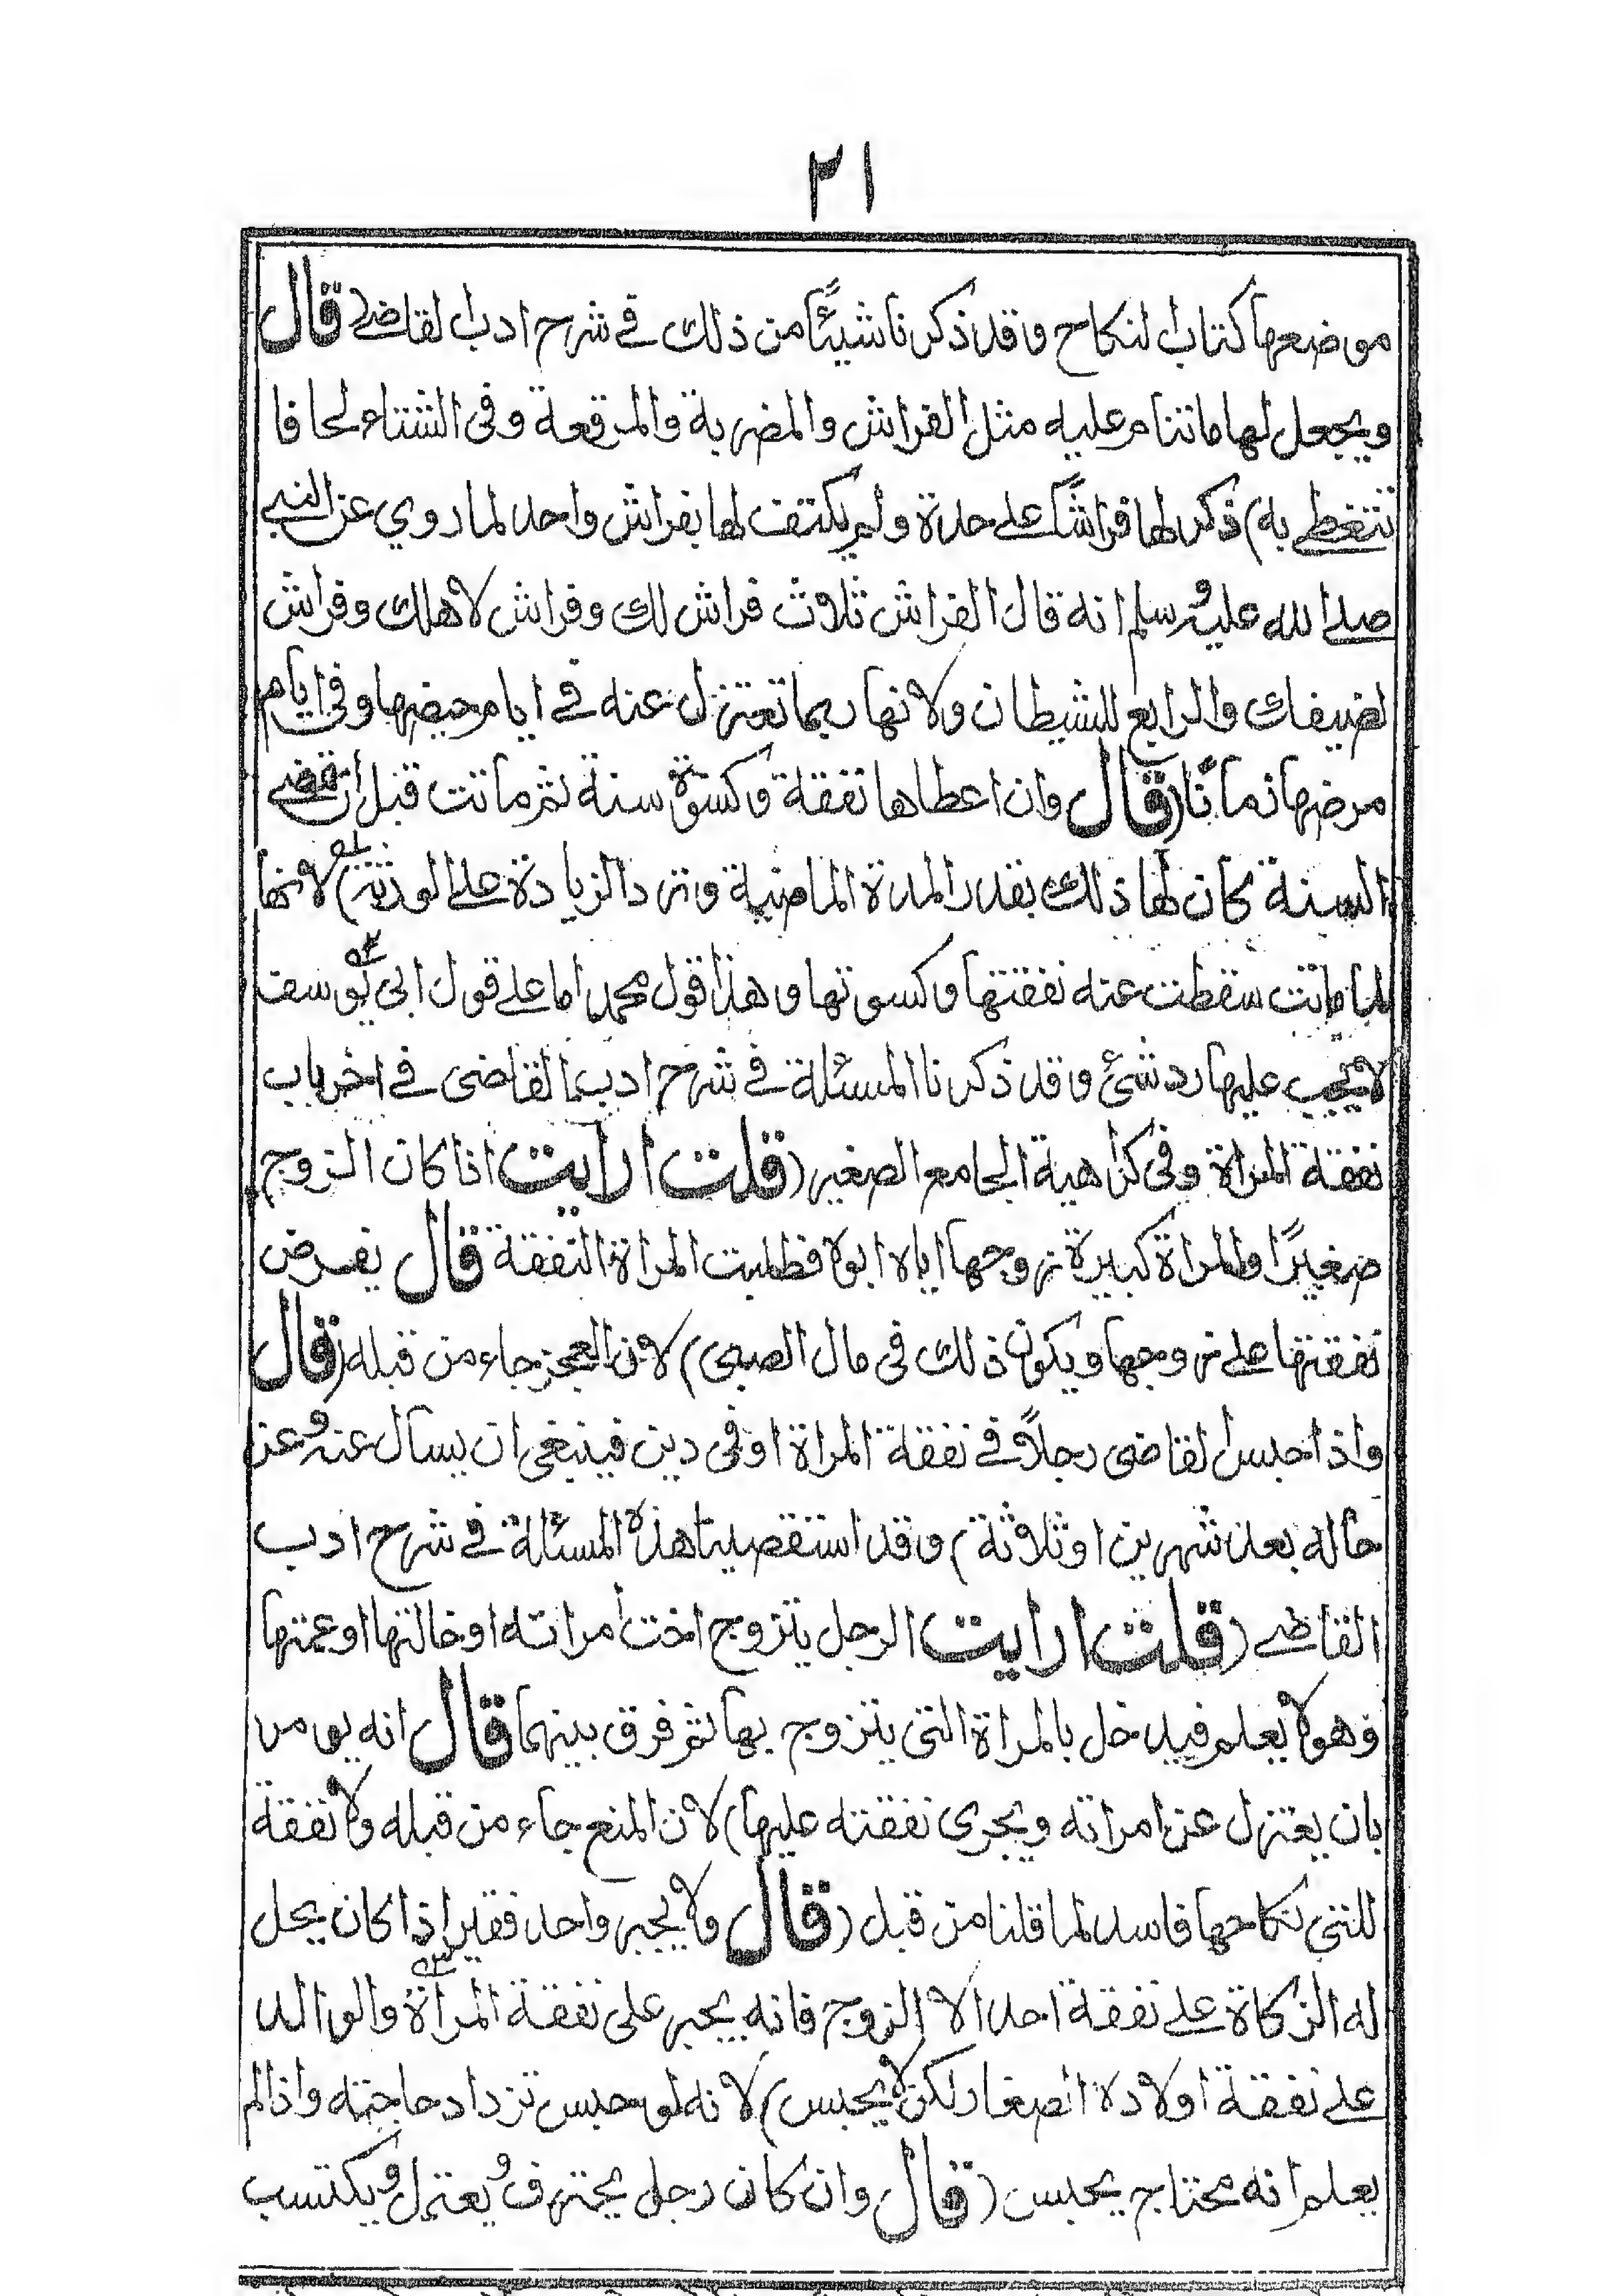 ٢١
موضعها كتاب النكاح وقد ذكرنا شيئًا من ذلك في شرح ادب القاضي قال
ويجعل لها ما تنام عليه مثل الفراش والمضربة والمرقعة وفى الشتاء لحافا
تتغطى به) ذكر لها فراشًا على حدة ولم يكتف لها بفراش واحد لما روي عن النبي
صلى الله عليه وسلم انه قال الفراش ثلاث فراش لك وفراش لاهلك وفراش
لضيفك والرابع للشيطان ولانها ربما تعتزل عنه في ايام حيضها وفي ايام
مرضها زمانًا (قال وان اعطاها نفقة وكسوة سنة ثم ماتت قبل ان تمضى
السنة كان لها ذلك بقدر المدة الماضية وترد الزيادة على الورثة) لانها
لما ماتت سقطت عنه نفقتها وكسوتها وهذا قول محمد اما على قول ابى يوسف
لا يجب عليها رد شئ وقد ذكرنا المسئلة في شرح ادب القاضى في اخر باب
نفقة المراة وفى كراهية الجامع الصغير (قلت ارايت اذا كان الزوج
صغيرًا والمراة كبيرة زوجها اياه ابوه فطلبت المراة النفقة قال يفرض
نفقتها على زوجها ويكون ذلك فى مال الصبى) لان العجز جاء من قبله (قال
واذا حبس القاضى رجلاً في نفقة المراة او فى دين فينبغى ان يسأل عنه وعن
حاله بعد شهرين او ثلاثة) وقد استقصينا هذه المسئلة في شرح ادب
القاضي (قلت ارايت الرجل يتزوج اخت امراته او خالتها او عمتها
وهو لا يعلم فيدخل بالمراة التى يتزوج بها ثم فرق بينهما قال انه يومر
بان يعتزل عن امراته ويجرى نفقته عليها) لان المنع جاء من قبله ولا نفقة
للتى نكاحها فاسد لما قلنا من قبل (قال ولا يجبر واحد فقير اذا كان يحل
له الزكاة على نفقة احد الا الزوج فانه يجبر على نفقة المراة والوالد
على نفقة اولاده الصغار لكن لا يحبس) لانه لو حبس تزداد حاجته واذا لم
يعلم انه محتاج يحبس (قال وان كان رجل يحترف ويعتمل ويكتسب